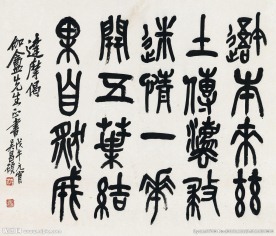 吾本來兹
土傳灋救
迷情一華
開五葉結
果自然成
達摩偈
伽盦先生正書
戊午元宵
吳昌碩